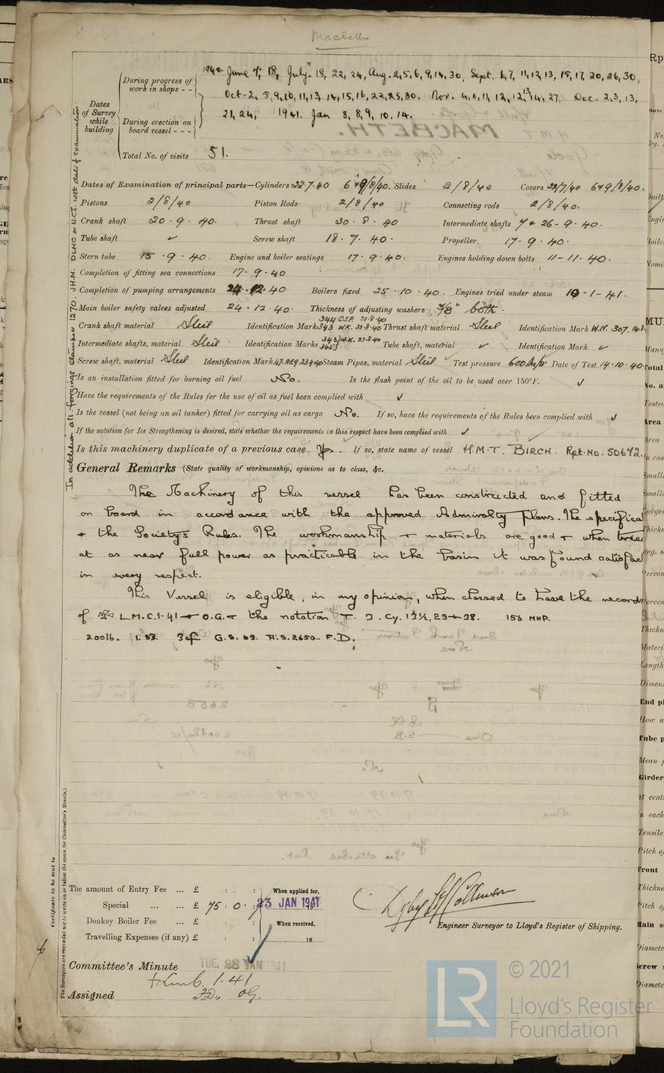 Macbeth
Dates of Survey while building
During progress of work in shops - -
1940. June 7, 18, July 18, 22, 24, Aug. 2, 5, 6, 9, 14, 30, Sept. 6, 7, 11, 12, 13, 15, 17, 20, 26, 30,
Oct. 2, 5, 9, 10, 11, 13, 14, 15, 16, 22, 25, 30. Nov. 4, 6, 11, 12, 13, 14, 27. Dec. 2, 3, 13,
During erection on board vessel - - -
21, 24, 1941. Jan 3, 8, 9, 10, 14.
Total No. of visits 51.
Dates of Examination of principal parts—Cylinders 22.7.40 6+9/8/40. Slides 2/8/40 Covers 22/7/40 6+9/8/40.
Pistons 2/8/40 Piston Rods 2/8/40 Connecting rods 2/8/40.
Crank shaft 20.9.40. Thrust shaft 30.8.40 Intermediate shafts 7+26-9.40.
Tube shaft ✓ Screw shaft 18.7.40. Propeller 17-9.40.
Stern tube 15.9.40. Engine and boiler seatings 17.9.40. Engines holding down bolts 11-11.40.
Completion of fitting sea connections 17-9-40
Completion of pumping arrangements 24.12.40 Boilers fixed 25-10-40. Engines tried under steam 10-1-41.
Main boiler safety valves adjusted 24.12.40. Thickness of adjusting washers 3/8" both
Crank shaft material Steel Identification Mark Thrust shaft material Steel Identification Mark
Intermediate shafts, material Steel Identification Marks Tube shaft, material ✓ Identification Mark ✓
Screw shaft, material Steel Identification Mark Steam Pipes, material Steel Test pressure 600 Date of Test 14.10.40
Is an installation fitted for burning oil fuel No. Is the flash point of the oil to be used over 150°F. ✓
Have the requirements of the Rules for the use of oil as fuel been complied with ✓
Is the vessel (not being an oil tanker) fitted for carrying oil as cargo No. If so, have the requirements of the Rules been complied with ✓
If the notation for Ice Strengthening is desired, state whether the requirements in this respect have been complied with ✓
Is this machinery duplicate of a previous case Yes. If so, state name of vessel H.M.T. BIRCH. Rpt. No. 50672.
General Remarks (State quality of workmanship, opinions as to class, &c.
The Machinery of this vessel has been constructed and fitted
on board in accordance with the approved Admiralty plans. The specifica
+ the Society's Rules. The workmanship + materials are good + when tried
at as near full power as practicable in the basin it was found satisfac
in every respect.
This Vessel is eligible, in my opinion, when classed to have the records
of L.M.C. 1-41 + O.G. + the notation T. 3 Cy. 23 + 38. 153 NHP.
200 lb. 1 SB. 3cf G.S. 63. H.S. 2650. F.D.
The amount of Entry Fee ... £ : :
Special ... ... £ 75 : 0 :
Donkey Boiler Fee ... £ : :
Travelling Expenses (if any) £ : :
When applied for,
23 JAN 1941
When received,
19
Engineer Surveyor to Lloyd's Register of Shipping.
Committee's Minute TUE. 28 JAN 1941
Assigned + LMC 1.41
F.D. OG.
© 2021
LR
Lloyd's Register
Foundation